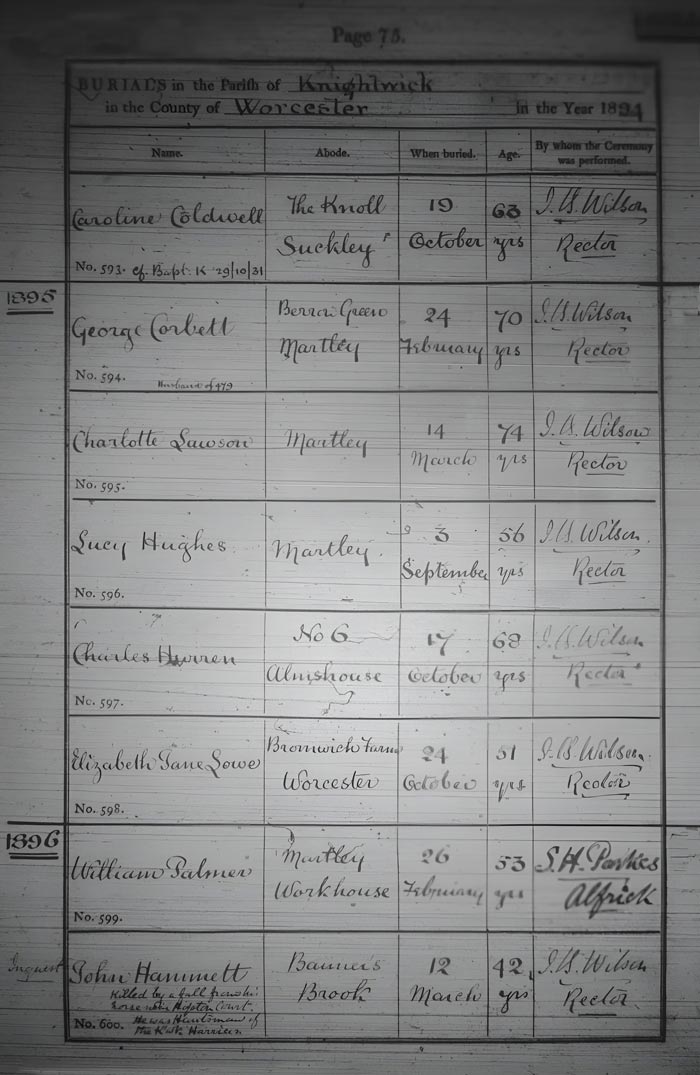 Page 75.
BURIALS in the Parish of Knightwick
in the County of Worcester In the Year 1894
Name. Abode. When buried. Age. By whom the Ceremony was performed.
Caroline Coldwell The Knoll 19 63 J. B. Wilson
Suckley October yrs Rector
No. 593. cf. Bapt. K 29/10/31
1895
George Corbett Berrow Green 24 70 J. B. Wilson
Martley February yrs Rector
No. 594. Husband of 479
Charlotte Lawson Martley 14 74 J. B. Wilson
March yrs Rector
No. 595.
Lucy Hughes Martley. 3 56 J. B. Wilson.
September yrs Rector
No. 596.
Charles Hurren No 6 17 68 J. B. Wilson
Almshouse October yrs Rector
No. 597.
Elizabeth Jane Lowe Bromwich Farm 24 51 J. B. Wilson.
Worcester October yrs Rector
No. 598.
1896
William Palmer Martley 26 53 S. H. Parkes
Workhouse February yrs Alfrick
No. 599.
Inquest John Hammett Banner's 12 42 J. B. Wilson
Brook March yrs Rector.
Killed by a fall from his
horse near Hopton Court.
No. 600. He was Huntsman of
the Harriers